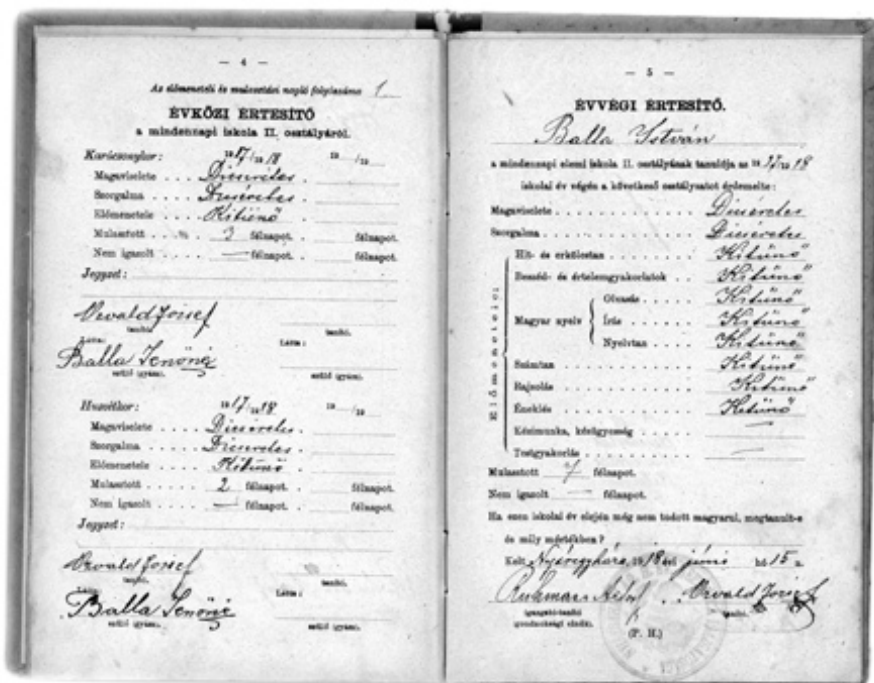 — 4 —
Az előmeneteli és mulasztási napló folyószáma 1
ÉVKÖZI ÉRTESITŐ
a mindennapi iskola II. osztályáról.
Karácsonykor: 1917/1918 19 /19
Magaviselete . . . . Dicséretes
Szorgalma . . . . Dicséretes
Előmenetele . . . . Kitünő
Mulasztott . . . . 3 félnapot. félnapot.
Nem igazolt . . . . — félnapot. félnapot.
Jegyzet:
Orvald József
tanító. tanító.
Látta: Látta:
Balla Jenőné
szülő (gyám). szülő (gyám).
Husvétkor: 1917/1918 19 /19
Magaviselete . . . . Dicséretes
Szorgalma . . . . Dicséretes
Előmenetele . . . . Kitünő
Mulasztott . . . . 2 félnapot. félnapot.
Nem igazolt . . . . — félnapot. félnapot.
Jegyzet:
Orvald József
tanító. tanító.
Látta: Látta:
Balla Jenőné
szülő (gyám). szülő (gyám).
— 5 —
ÉVVÉGI ÉRTESITŐ.
Balla István
a mindennapi elemi iskola II. osztályának tanulója az 1917/1918
iskolai év végén a következő osztályzatot érdemelte:
Magaviselete . . . . Dicséretes
Szorgalma . . . . Dicséretes
Előmenetele:
Hit- és erkölcstan . . . . Kitünő
Beszéd- és értelemgyakorlatok . . . . Kitünő
Magyar nyelv
Olvasás . . . . Kitünő
Írás . . . . Kitünő
Nyelvtan . . . . Kitünő
Számtan . . . . Kitünő
Rajzolás . . . . Kitünő
Éneklés . . . . Kitünő
Kézimunka, kézügyesség . . . . —
Testgyakorlás . . . . —
Mulasztott 7 félnapot.
Nem igazolt — félnapot.
Ha ezen iskolai év elején még nem tudott magyarul, megtanult-e
és mily mértékben?
Kelt 1918 évi junió hó 15 n.
Orvald József
igazgató-tanító tanító.
gondnoksági elnök.
(P. H.)